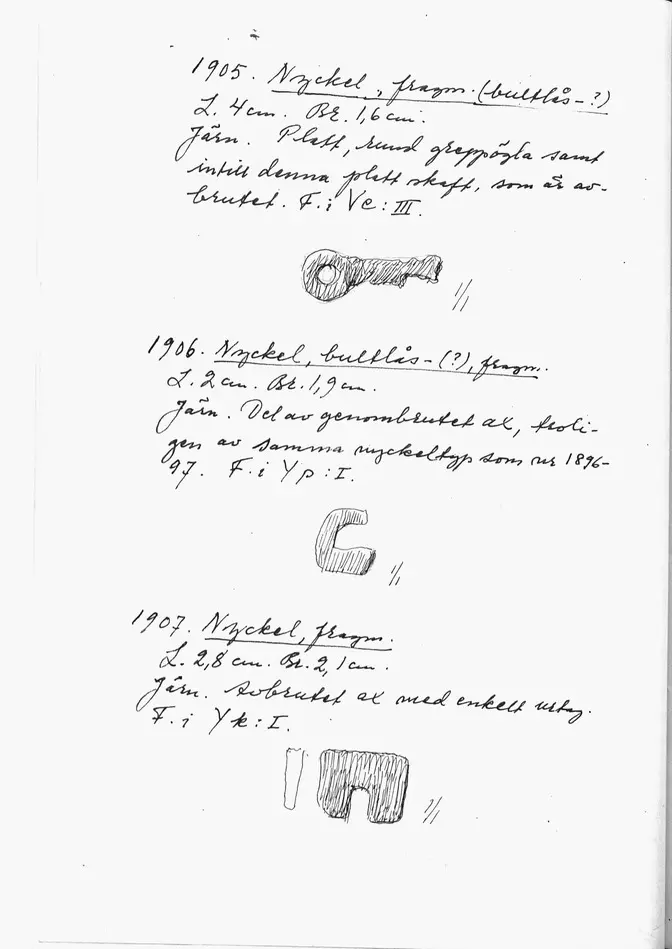 1905. Nyckel, fragm. (bultlås-?)
L. 4 cm. Br. 1,6 cm.
Järn. Platt, rund greppögla samt
intill denna platt skaft, som är av-
brutet. F. i Vc : III.
1/1
1906. Nyckel, bultlås- (?), fragm.
L. 2 cm. Br. 1,9 cm.
Järn. Del av genombrutet ax, troli-
gen av samma nyckeltyp som nr 1896-
97. F. i Yp : I.
1/1
1907. Nyckel, fragm.
L. 2,8 cm. Br. 2,1 cm.
Järn. Avbrutet ax med enkelt urtag.
F. i Yk : I.
1/1